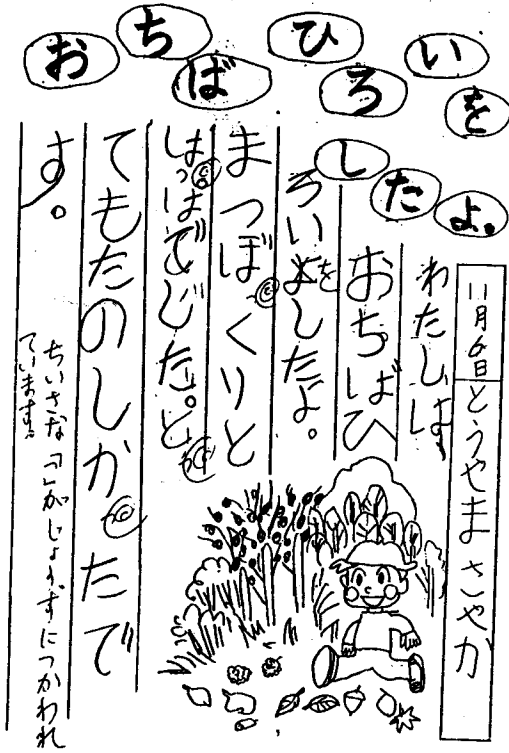 おちばひろいを
したよ。
11月6日 とうやまさやか
わたしは、
おちばひ
ろいをしたよ。
まつぼっくりと
はっぱでした。とっ
てもたのしかったで
す。
ちいさな「っ」がじょうずにつかわれ
ています。